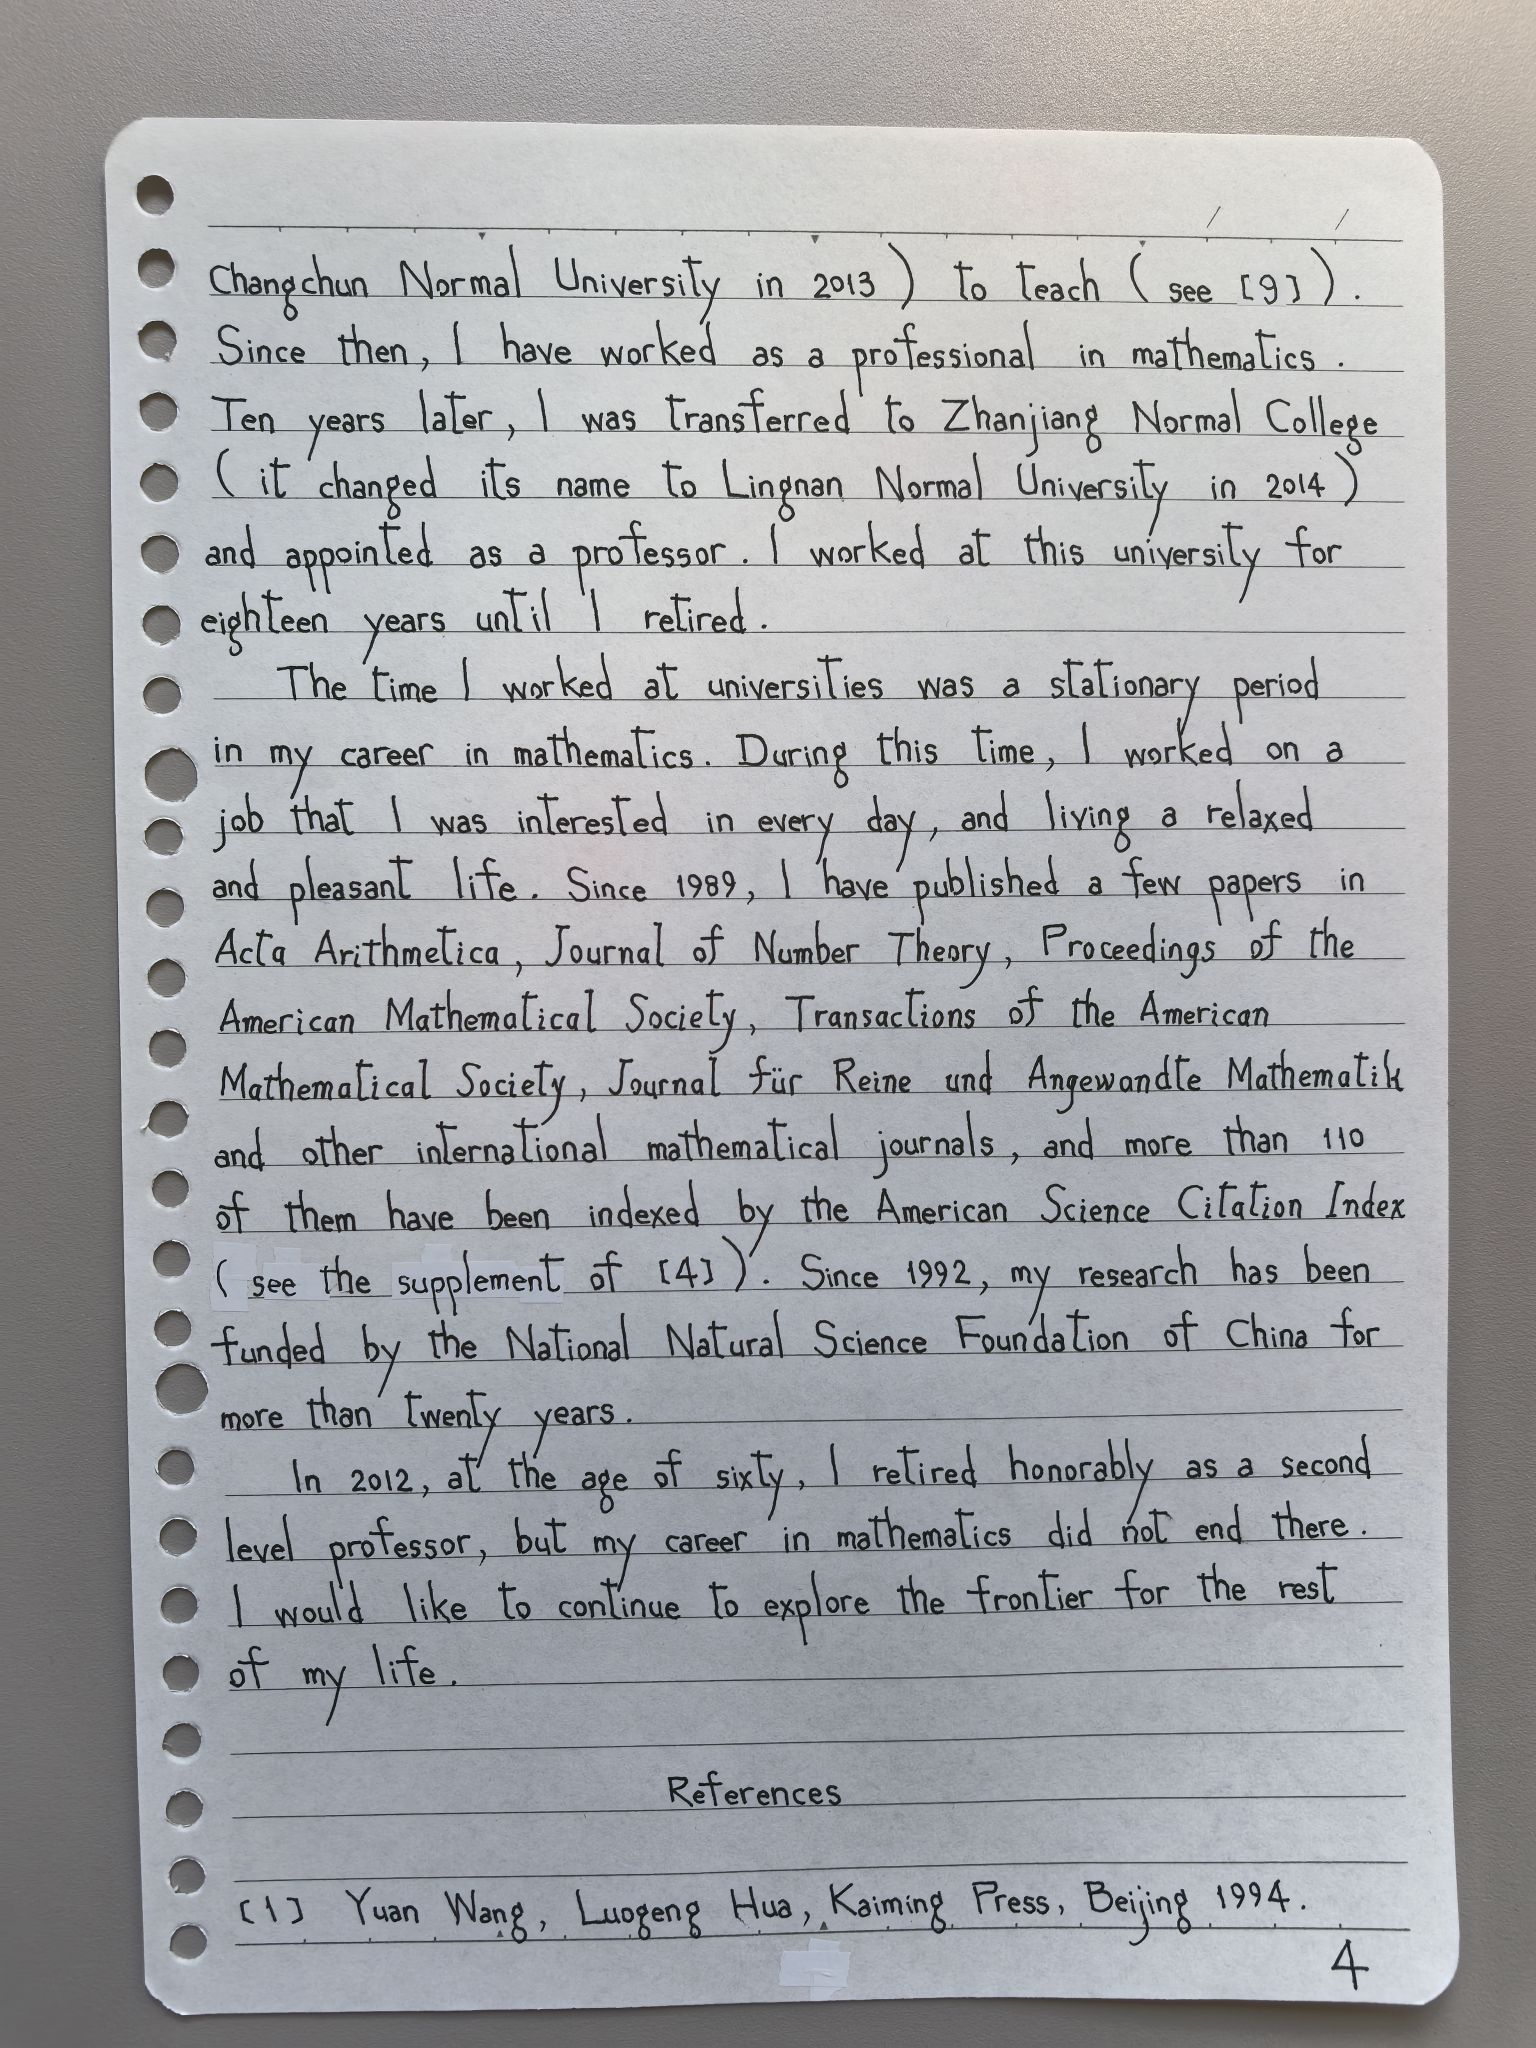 Changchun Normal University in 2013) to teach (see [9]).
Since then, I have worked as a professional in mathematics.
Ten years later, I was transferred to Zhanjiang Normal College
(it changed its name to Lingnan Normal University in 2014)
and appointed as a professor. I worked at this university for
eighteen years until I retired.
The time I worked at universities was a stationary period
in my career in mathematics. During this time, I worked on a
job that I was interested in every day, and living a relaxed
and pleasant life. Since 1989, I have published a few papers in
Acta Arithmetica, Journal of Number Theory, Proceedings of the
American Mathematical Society, Transactions of the American
Mathematical Society, Journal für Reine und Angewandte Mathematik
and other international mathematical journals, and more than 110
of them have been indexed by the American Science Citation Index
(see the supplement of [4]). Since 1992, my research has been
funded by the National Natural Science Foundation of China for
more than twenty years.
In 2012, at the age of sixty, I retired honorably as a second
level professor, but my career in mathematics did not end there.
I would like to continue to explore the frontier for the rest
of my life.
References
[1] Yuan Wang, Luogeng Hua, Kaiming Press, Beijing 1994.
4